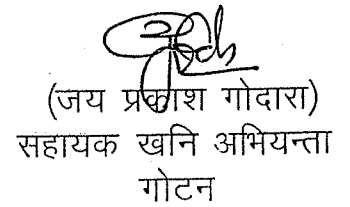 (जय प्रकाश गोदारा)
सहायक खनि अभियन्ता
गोटन